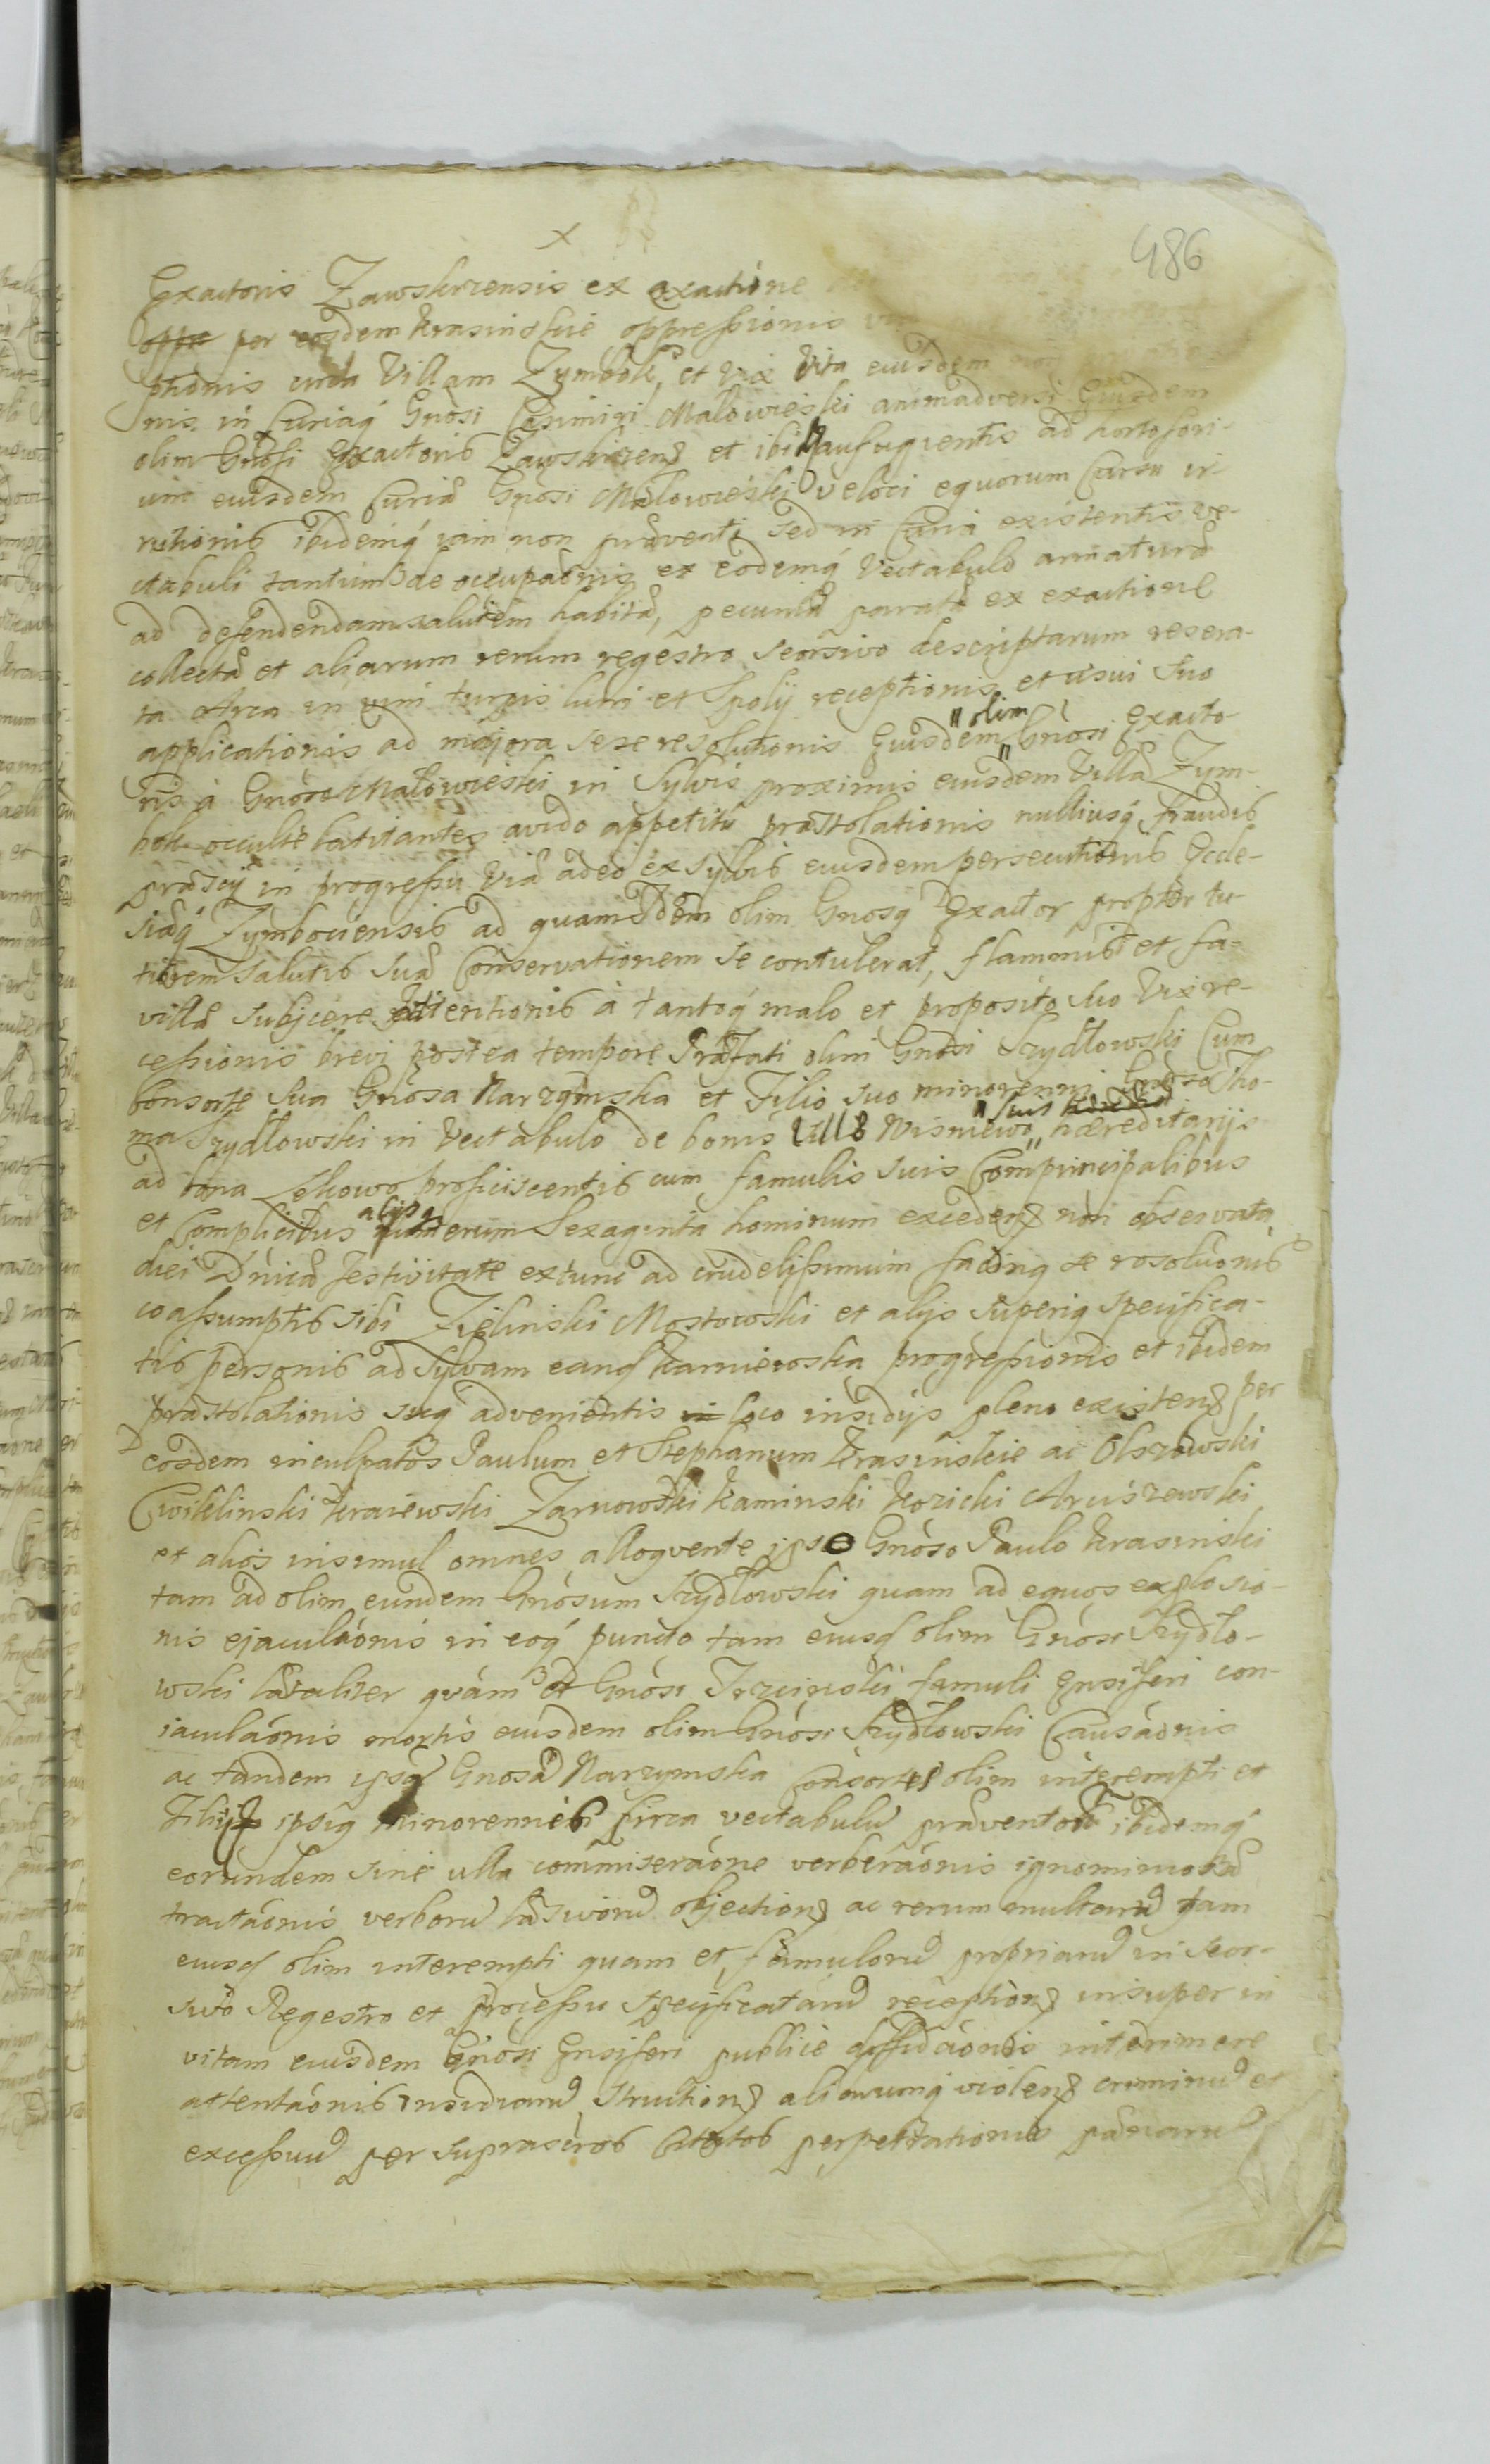 486
x
Exactoris Zawskrzensis ex exactione
oppr per eosdem Krasinskie oppressionis
ptionis circa Villam Zymbok, et vix vita eiusdem
nis, in Curiaq Gnosi Casimiri Małowieski animadversi Eiusdem
olim Gnosi Exactoris Zawskrzens et ibi aufugientis ad
um eiusdem Curiæ Gnosi Małowieski veloci equorum Cursu ir
rutionis ibidemq iam non præventi sed in Curia existentis ve-
ctabuli tantum de occupaonis ex eodemq Vectabulo armaturæ
ad defendendam salutem habitæ, pecuniæ paratæ ex exactione
collectæ et aliarum rerum regestro seorsivo descriptarum resera-
ta Arca in vim turpis lucri et Spolij receptionis et usui suo
applicationis ad majora sese resolutionis Eiusdem "olim" Gnosi Exacto-
ris à Gnoso Małowieski in Sylvis proximis eiusdem Villæ Zym-
bok occultè latitantes avido appetitu præstolationis nulliusq fraudis
præscij in progressu viæ adeo ex sylvis eiusdem persecutionis Eccle-
siæq Zymbociensis ad quam Idem olim Gnosq Exactor propter tu
tiorem salutis suæ Conservationem se contulerat, flammis et fa-
villæ subjicere attentionis à tantoq malo et proposito suo Vix re-
cessionis brevi postea tempore Præfati olim Gnosi Szydłowski Cum
Consorte sua Gnosa Narzymska et Filio suo minorenni Gnoso Tho-
ma Szydłowski in Vectabulo de bonis Villæ Wisniewo "suis hæreditarijs
ad bona Lekowo proficiscentis cum famulis suis Comprincipalibus
et Complicibus alijsq numerum Sexaginta hominum excedens non observata
diei Dnicæ festivitate extunc ad crudelissimum facinq se resoluonis
coassumptis sibi Zielinski Mostowski et alijs superiq specifica-
tis personis ad Sylvam eand Karniewska progressionis et ibidem
præstolationis suq advenientis in loco insidijs pleno existens per
eosdem inculpatos Paulum et Stephanum Krasinskie ac Olszewski
Cwiklinski Kraiewski Zarnowski Kaminski Kozicki Arciszewski
et alios insimul omnes alloqvente ipso Gnoso Paulo Krasinski
tam ad olim eundem Gnosum Szydłowski quam ad equos explosio-
nis ejaculaonis in eoq puncto tam eiusd olim Gnosi Szydło-
wski lætaliter qvàm et Gnosi famuli Ensiferi con-
iaculaonis mortis eiusdem olim Gnosi Szydłowski Causaonis
ac tandem ipsq Gnosæ Narzymska Consortis olim interempti et
Filij ipsiq minorennis circa vectabulu præventor ibidemq
eorundem sine ulla commiseraone verberaonis ignominiosæ
tractaonis verboru lascivoru objections ac rerum multaru tam
eiusd olim interempti quam et famuloru propriaru in seor-
sivo Regestro et processu specificataru receptions insuper in
vitam eiusdem Gnosi Ensiferi publicè diffidaonis interimere
attentaonis insidiaru structions aliorumq violens criminu et
excessuu per suprascros Citatos perpetrationis pænaru